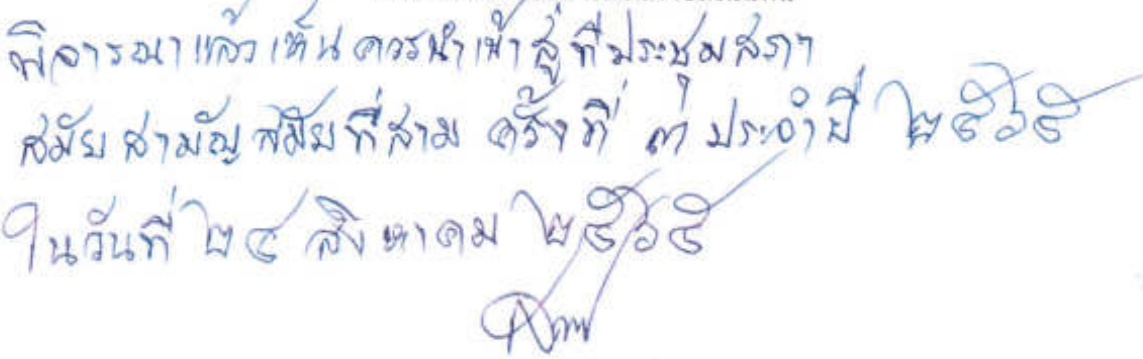 พิจารณาแล้วเห็นควรนำเข้าสู่ที่ประชุมสภาฯ
สมัยสามัญ สมัยที่สาม ครั้งที่ ๓ ประจำปี ๒๕๖๕
ในวันที่ ๒๔ สิงหาคม ๒๕๖๕